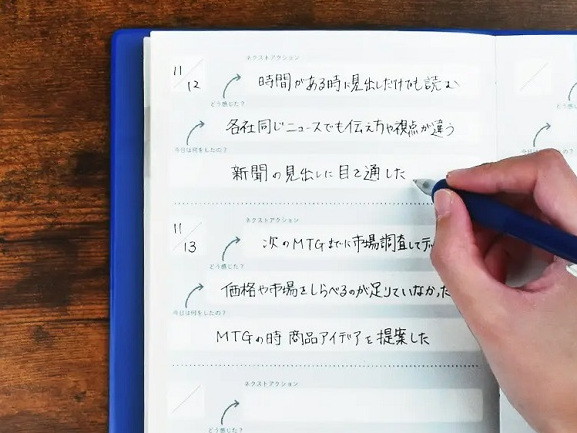 ネクストアクション
11/12
時間がある時に見出しだけでも読む
どう感じた？
各社同じニュースでも伝え方や視点が違う
今日は何をしたの？
新聞の見出しに目を通した
ネクストアクション
11/13
次のMTGまでに市場調査して
どう感じた？
価格や市場をしらべるのが足りていなかった
今日は何をしたの？
MTGの時 商品アイデアを提案した
ネクストアクション
どう感じた？